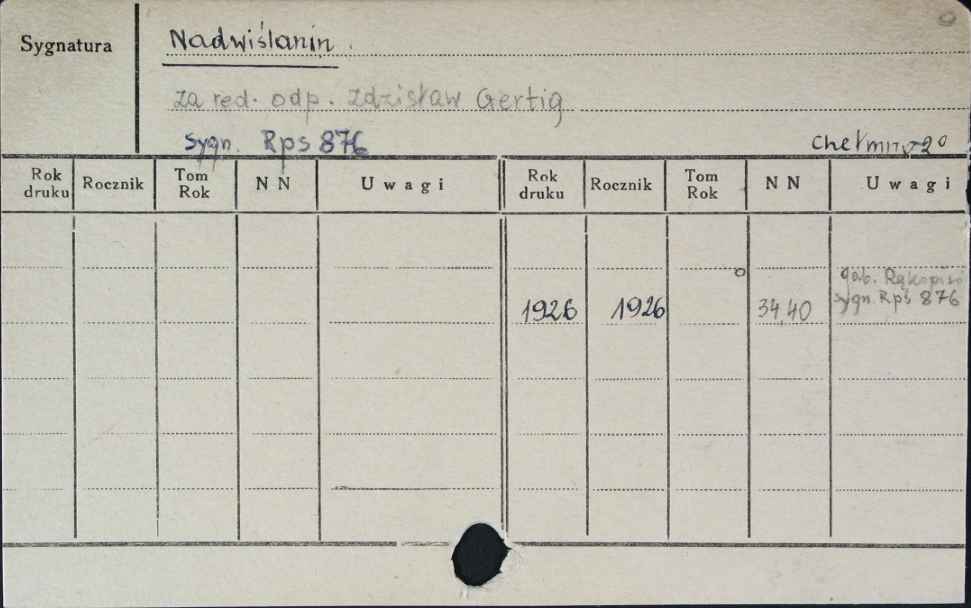 Sygnatura
Nadwiślanin.
za red. odp. Zdzisław Gertig
Sygn. Rps 876
Chełmno 20
Rok druku Rocznik Tom Rok N N Uwagi Rok druku Rocznik Tom Rok N N Uwagi
Gab. Rękopisó
1926 1926 34,40 sygn. Rps 876